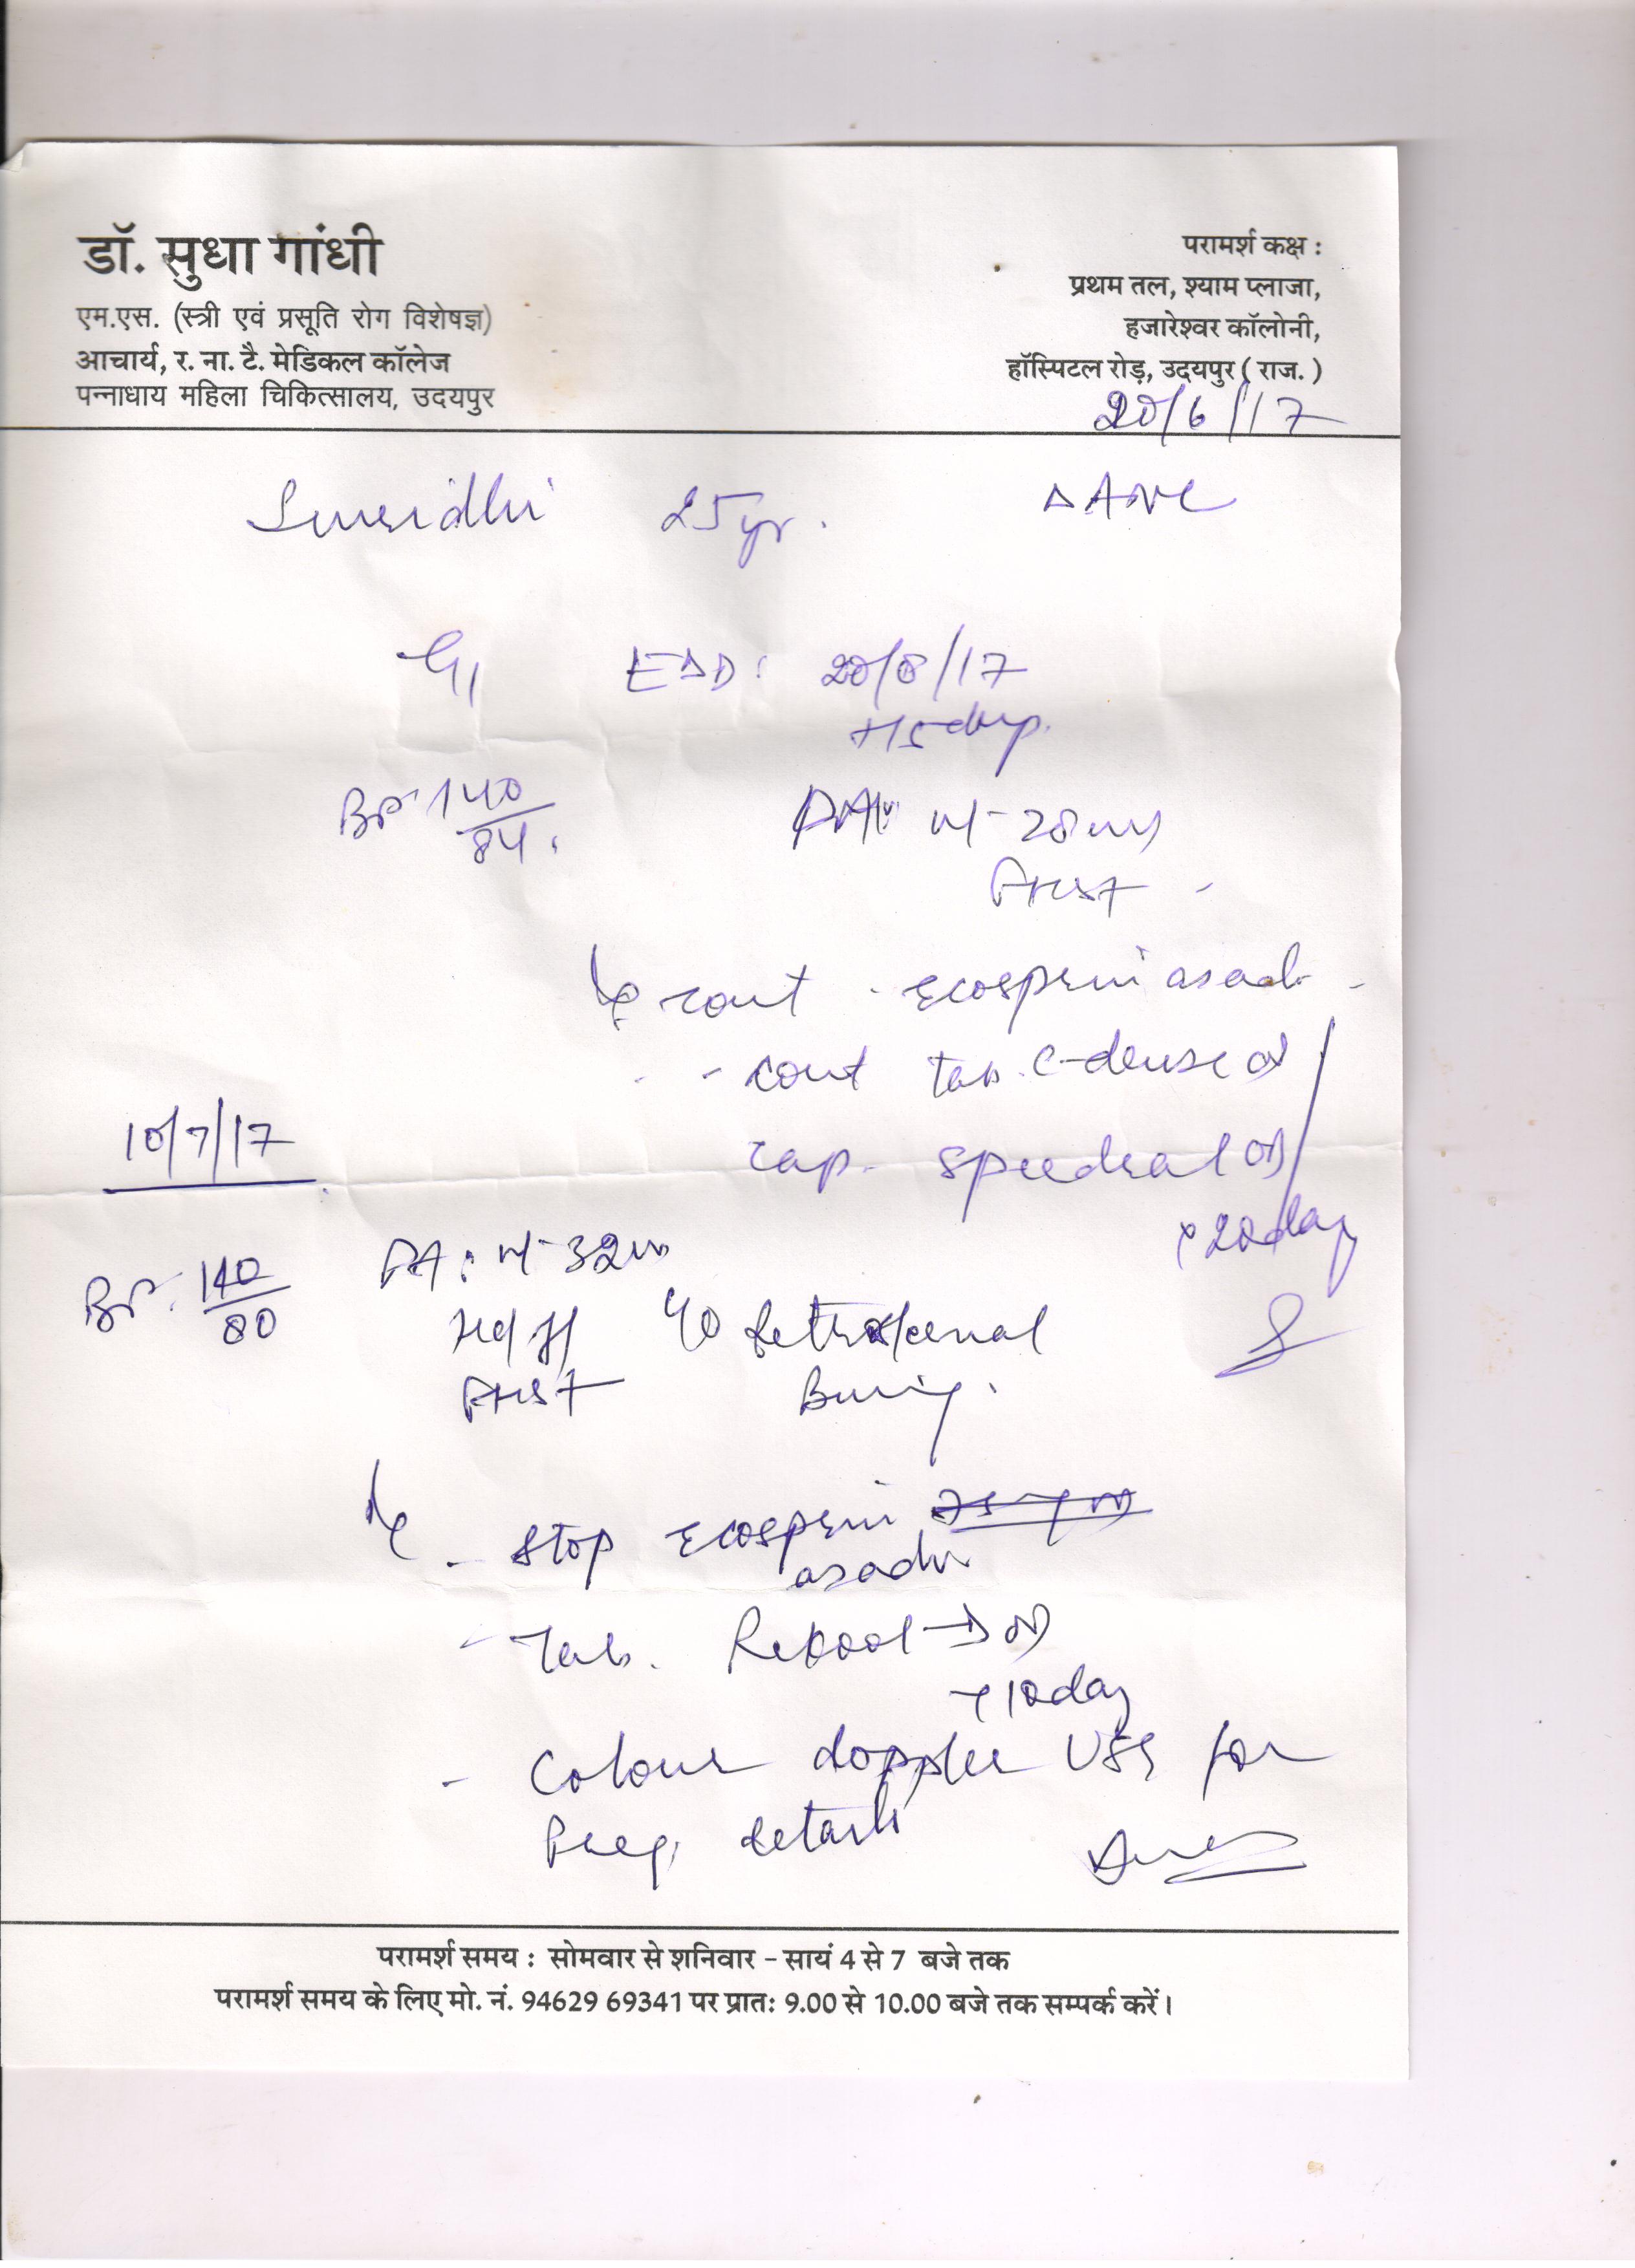 डॉ. सुधा गांधी
एम.एस. (स्त्री एवं प्रसूति रोग विशेषज्ञ)
आचार्य, र. ना. टै. मेडिकल कॉलेज
पन्नाधाय महिला चिकित्सालय, उदयपुर
परामर्श कक्ष :
प्रथम तल, श्याम प्लाजा,
हजारेश्वर कॉलोनी,
हॉस्पिटल रोड़, उदयपुर ( राज. )
20/6/17
25 yr. ΔANC
G1 EDD: 20/8/17
BP 140/84. PA: ut-28ws
FHS+
cont - Ecosprin
- cont Tab. C-dense OD
cap. OD
x 20day
10/7/17
BP. 140/80 PA: ut-32w
FHS+ C/O Retrosternal
Burning.
- Stop Ecosprin
- Tab. Rekool-D OD
x 10day
- Colour doppler USG for
Preg. details
परामर्श समय : सोमवार से शनिवार - सायं 4 से 7 बजे तक
परामर्श समय के लिए मो. नं. 94629 69341 पर प्रातः 9.00 से 10.00 बजे तक सम्पर्क करें।